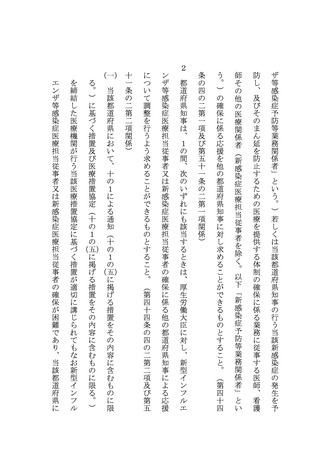 ザ等感染症予防等業務関係者」という。）若しくは当該都道府県知事の行う当該新感染症の発生を予
防し、及びそのまん延を防止するための医療を提供する体制の確保に係る業務に従事する医師、看護
師その他の医療関係者（新感染症医療担当従事者を除く。以下「新感染症予防等業務関係者」とい
う。）の確保に係る応援を他の都道府県知事に対し求めることができるものとすること。（第四十四
条の四の二第一項及び第五十一条の二第一項関係）
２　都道府県知事は、１の間、次のいずれにも該当するときは、厚生労働大臣に対し、新型インフルエ
ンザ等感染症医療担当従事者又は新感染症医療担当従事者の確保に係る他の都道府県知事による応援
について調整を行うよう求めることができるものとすること。（第四十四条の四の二第二項及び第五
十一条の二第二項関係）
㈠　当該都道府県において、十の１による通知（十の１の㈤に掲げる措置をその内容に含むものに限
る。）に基づく措置及び医療措置協定（十の１の㈤に掲げる措置をその内容に含むものに限る。）
を締結した医療機関が行う当該医療措置協定に基づく措置が適切に講じられてもなお新型インフル
エンザ等感染症医療担当従事者又は新感染症医療担当従事者の確保が困難であり、当該都道府県に